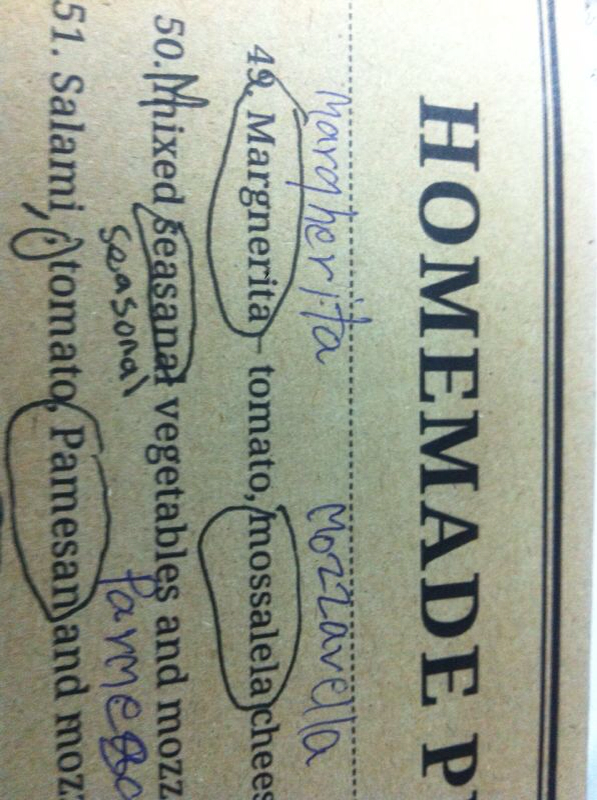 HOMEMADE
Margherita Mozzarella
49. Margnerita - tomato, mossalela chees
50. Mixed seasanal vegetables and mozz
seasonal
51. Salami, tomato, Pamesan and moz